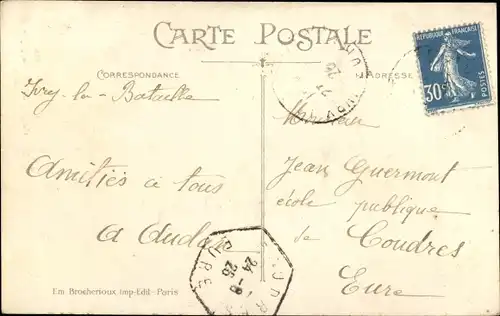 CARTE POSTALE
CORRESPONDANCE
ADRESSE
RÉPUBLIQUE FRANÇAISE
30c
POSTES
Ivry-la-Bataille
Amitiés à tous
Monsieur
Jean Guermont
école publique
de Coudres
Eure
24-8
26
EURE
Em Brocherioux Imp-Edit- Paris